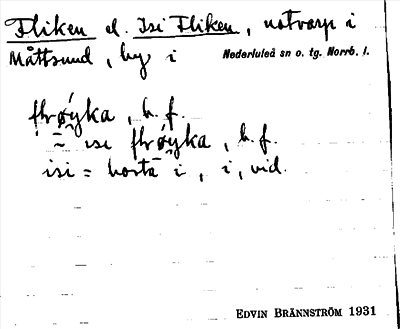 Fliken el. Isi Fliken, notvarp i
Måttsund, by i Nederluleå sn o. tg. Norrb. l.
flrøyka, b. f.
= isi flrøyka, b. f.
isi = borta i, i, vid.
EDVIN BRÄNNSTRÖM 1931